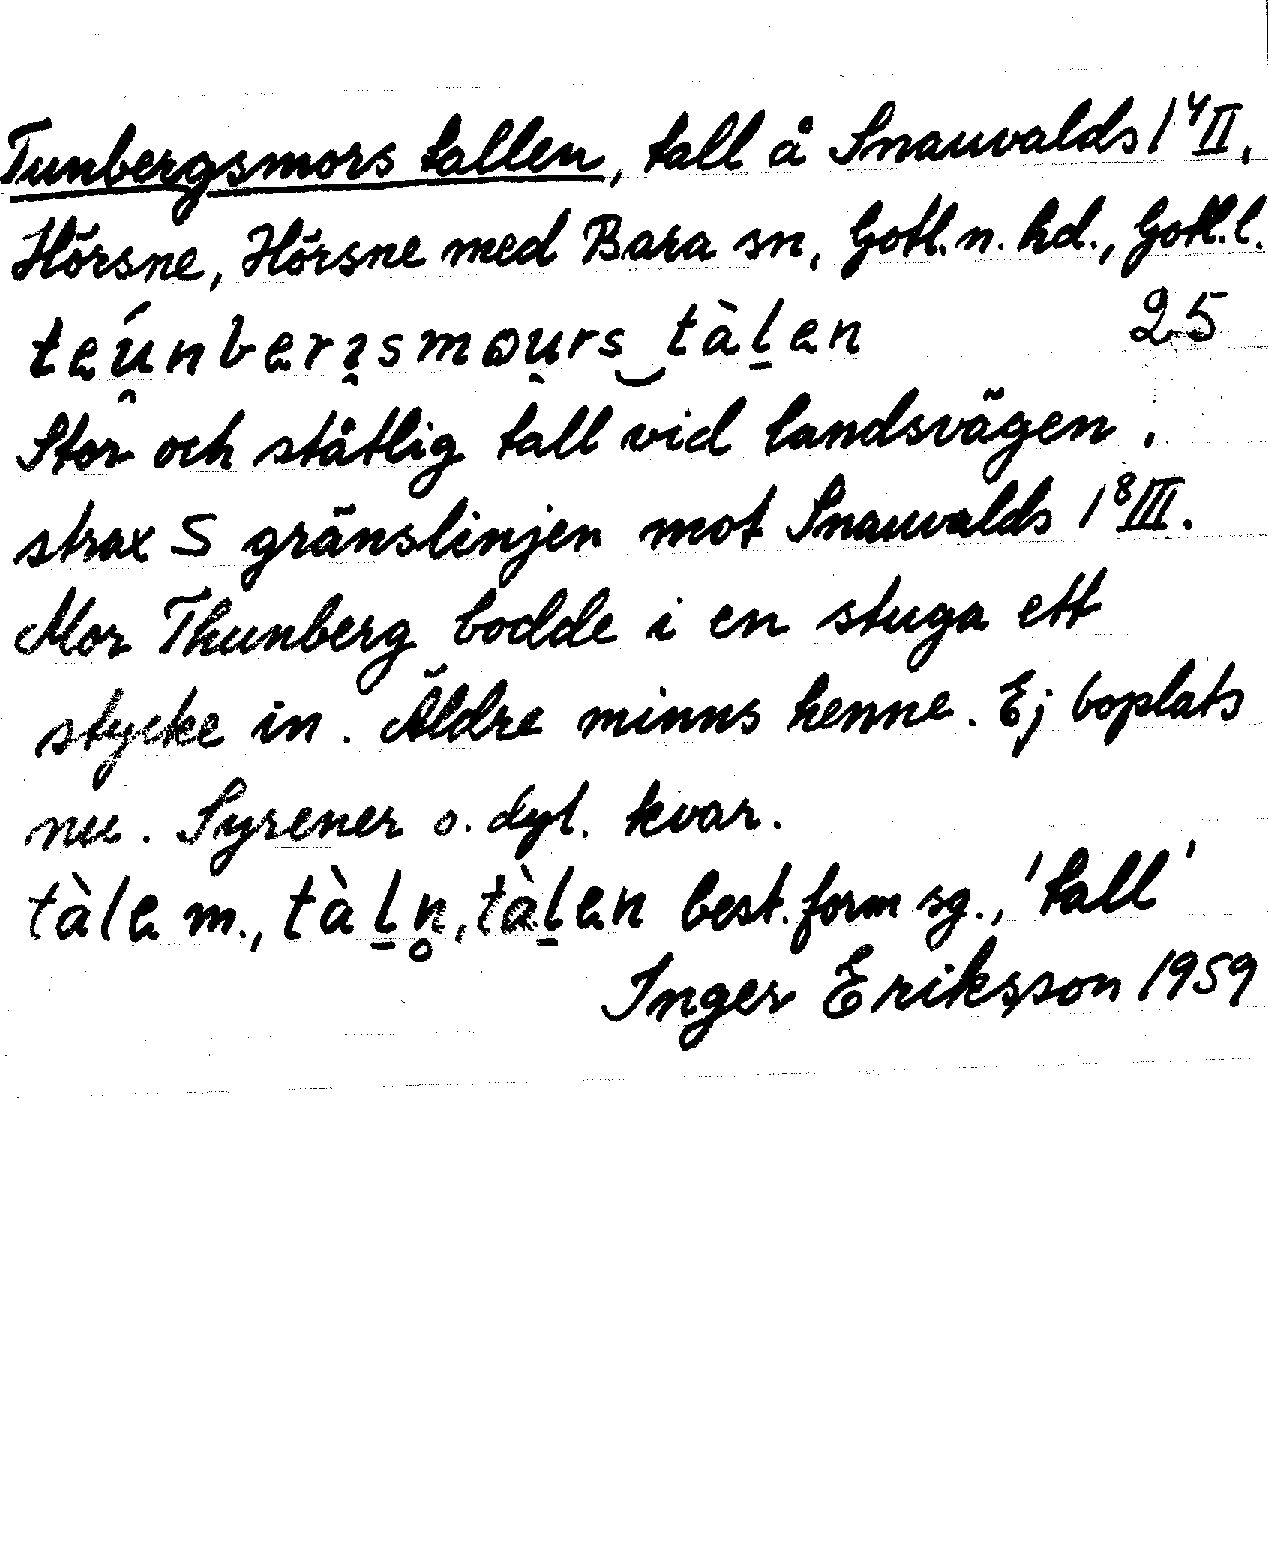 Tunbergsmors tallen, tall å Snauvalds 1⁴II,
Hörsne, Hörsne med Bara sn, Gotl. n. hd., Gotl. l.
teú̯nberʒsmɷu̯rs‿tàl̠en 25
Stor och ståtlig tall vid landsvägen
strax S gränslinjen mot Snauvalds 1⁸III.
Mor Thunberg bodde i en stuga ett
stycke in. Äldre minns henne. Ej boplats
nu. Syrener o. dyl. kvar.
tàle m., tàl̠n̥, tàl̠en best. form sg., 'tall'
Inger Eriksson 1959